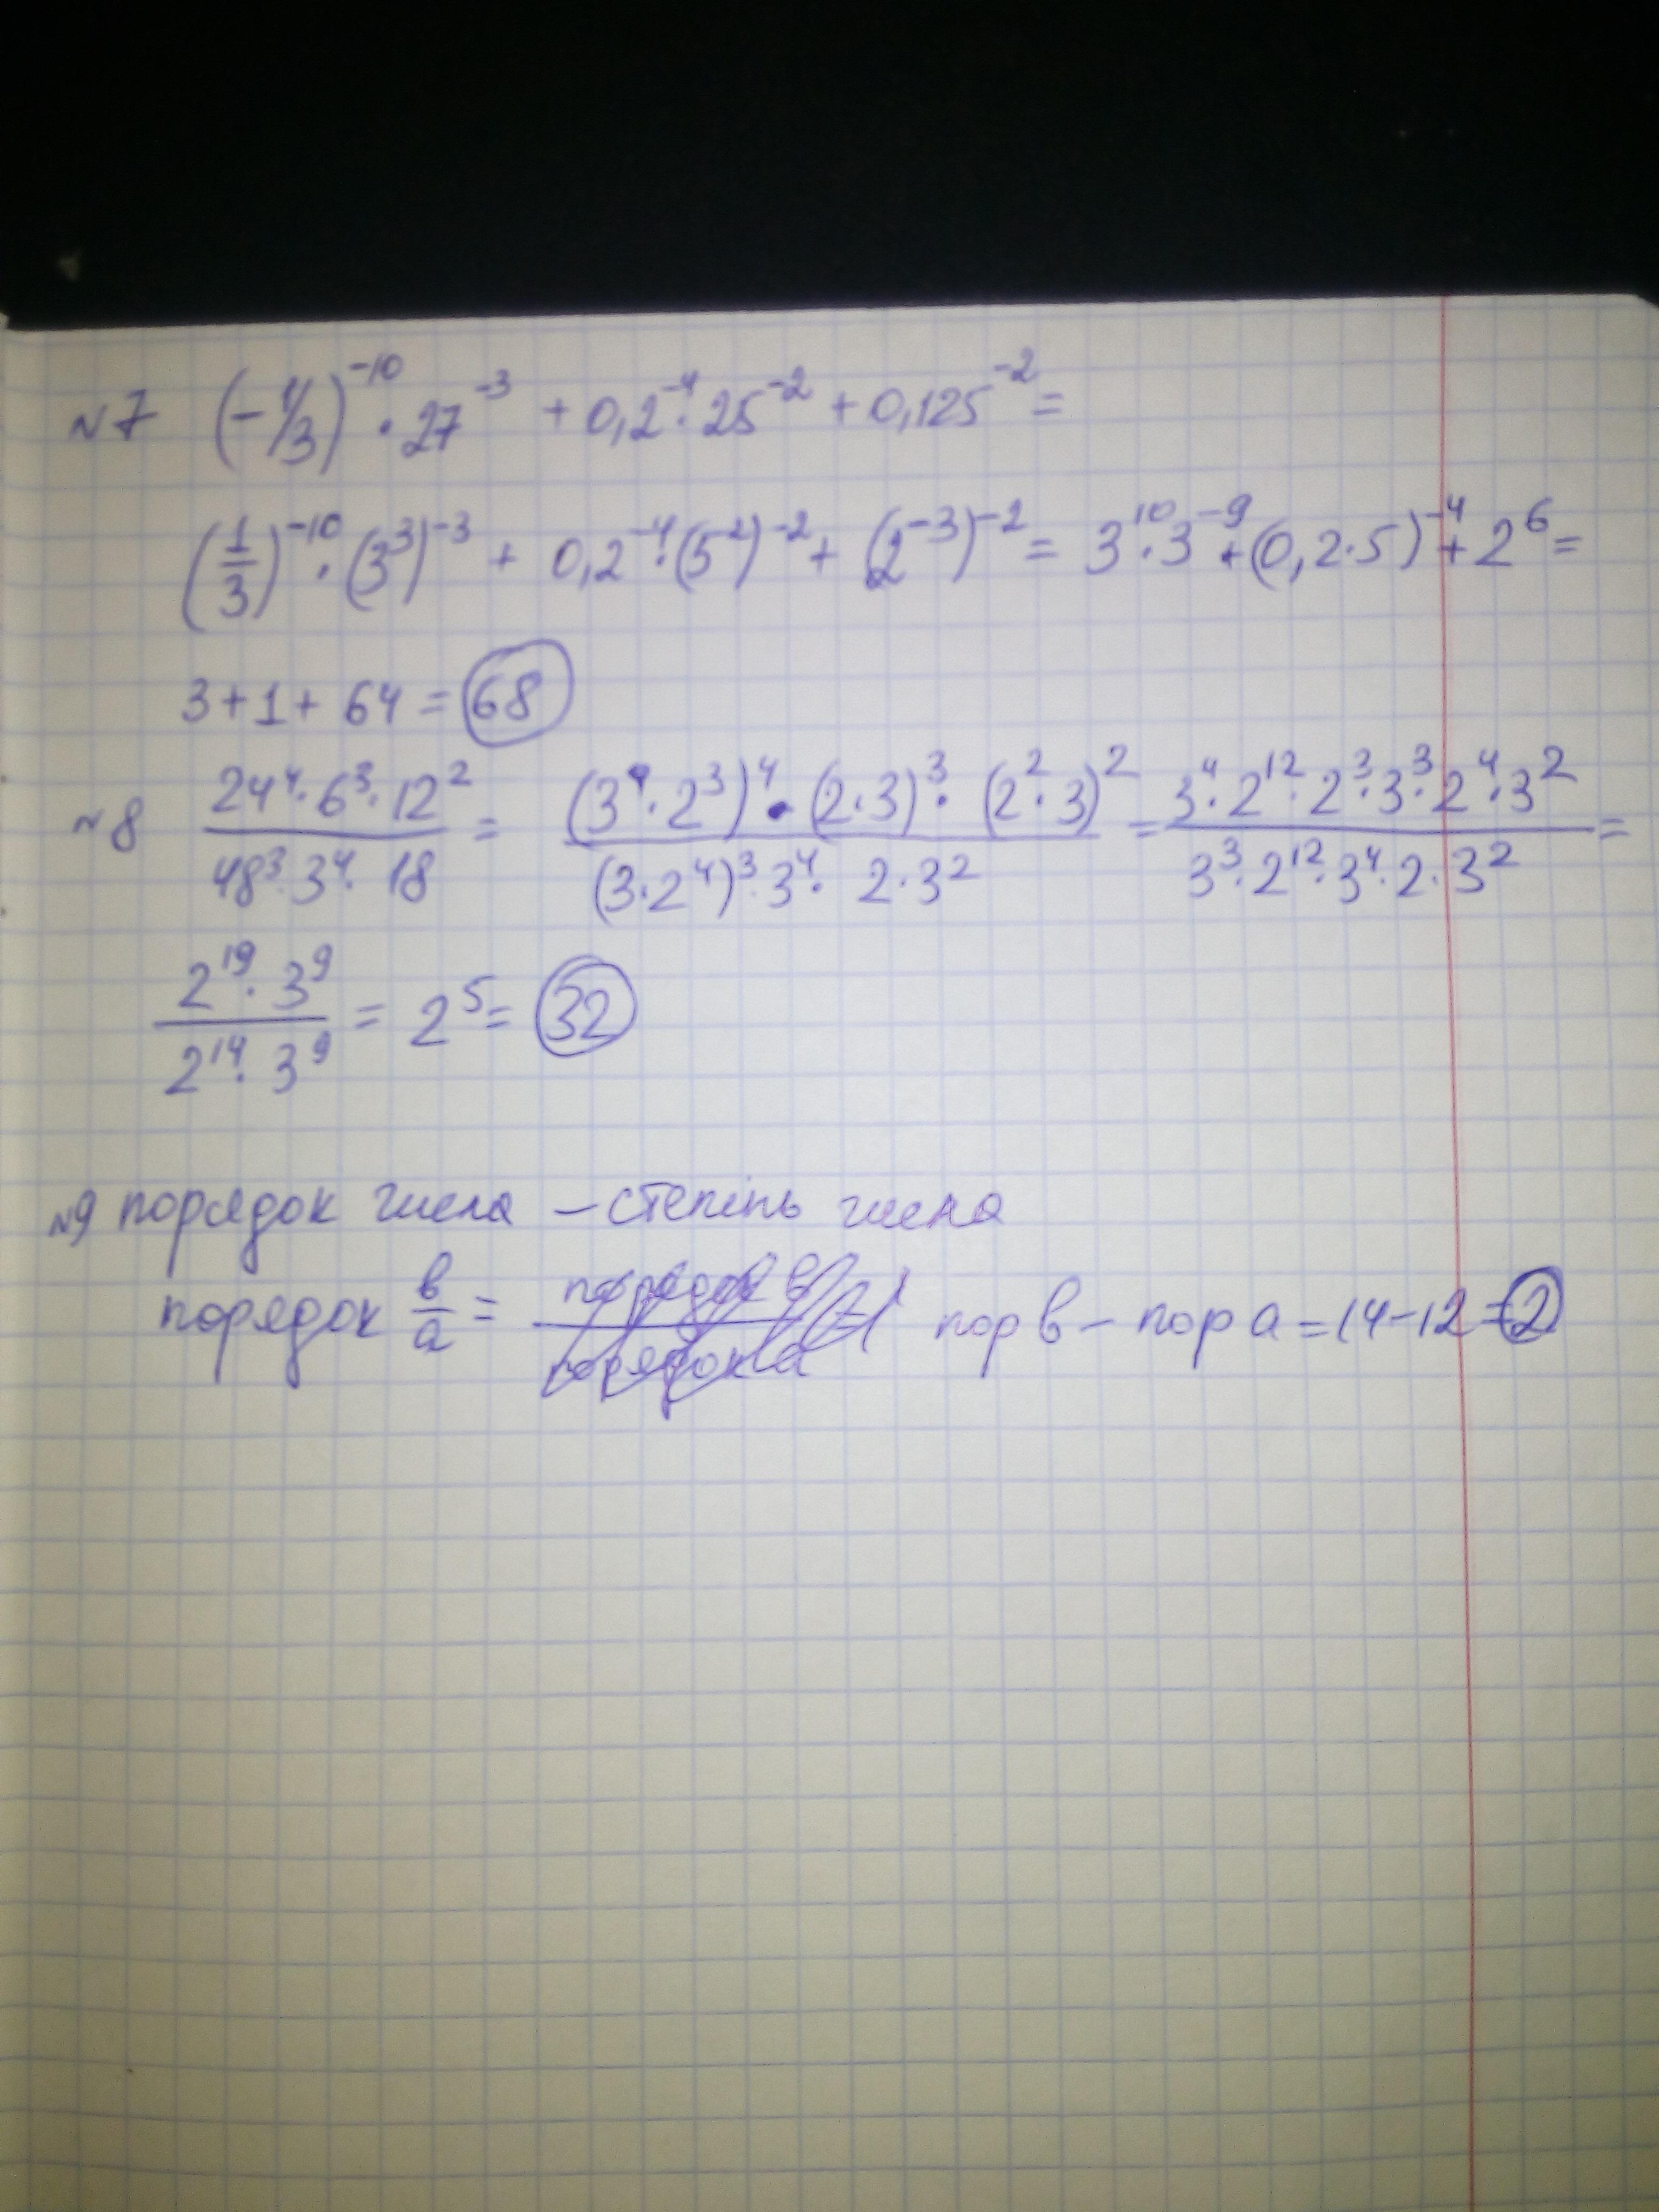 №7 (-1/3)^-10 · 27^-3 + 0,2^-4 · 25^-2 + 0,125^-2 =
(1/3)^-10 · (3^3)^-3 + 0,2^-4 · (5^2)^-2 + (2^-3)^-2 = 3^10 · 3^-9 + (0,2·5)^-4 + 2^6 =
3+1+ 64 = 68
№8 (24^4 · 6^3 · 12^2)/(48^3 · 3^4 · 18) = ((3 · 2^3)^4 · (2·3)^3 · (2^2 · 3)^2)/((3·2^4)^3 · 3^4 · 2·3^2) = (3^4 · 2^12 · 2^3 · 3^3 · 2^4 · 3^2)/(3^3 · 2^12 · 3^4 · 2 · 3^2) =
(2^19 · 3^9)/(2^14 · 3^9) = 2^5 = 32
№9 порядок числа – степінь числа
порядок в/а = пор в – пор а = 14-12 = 2